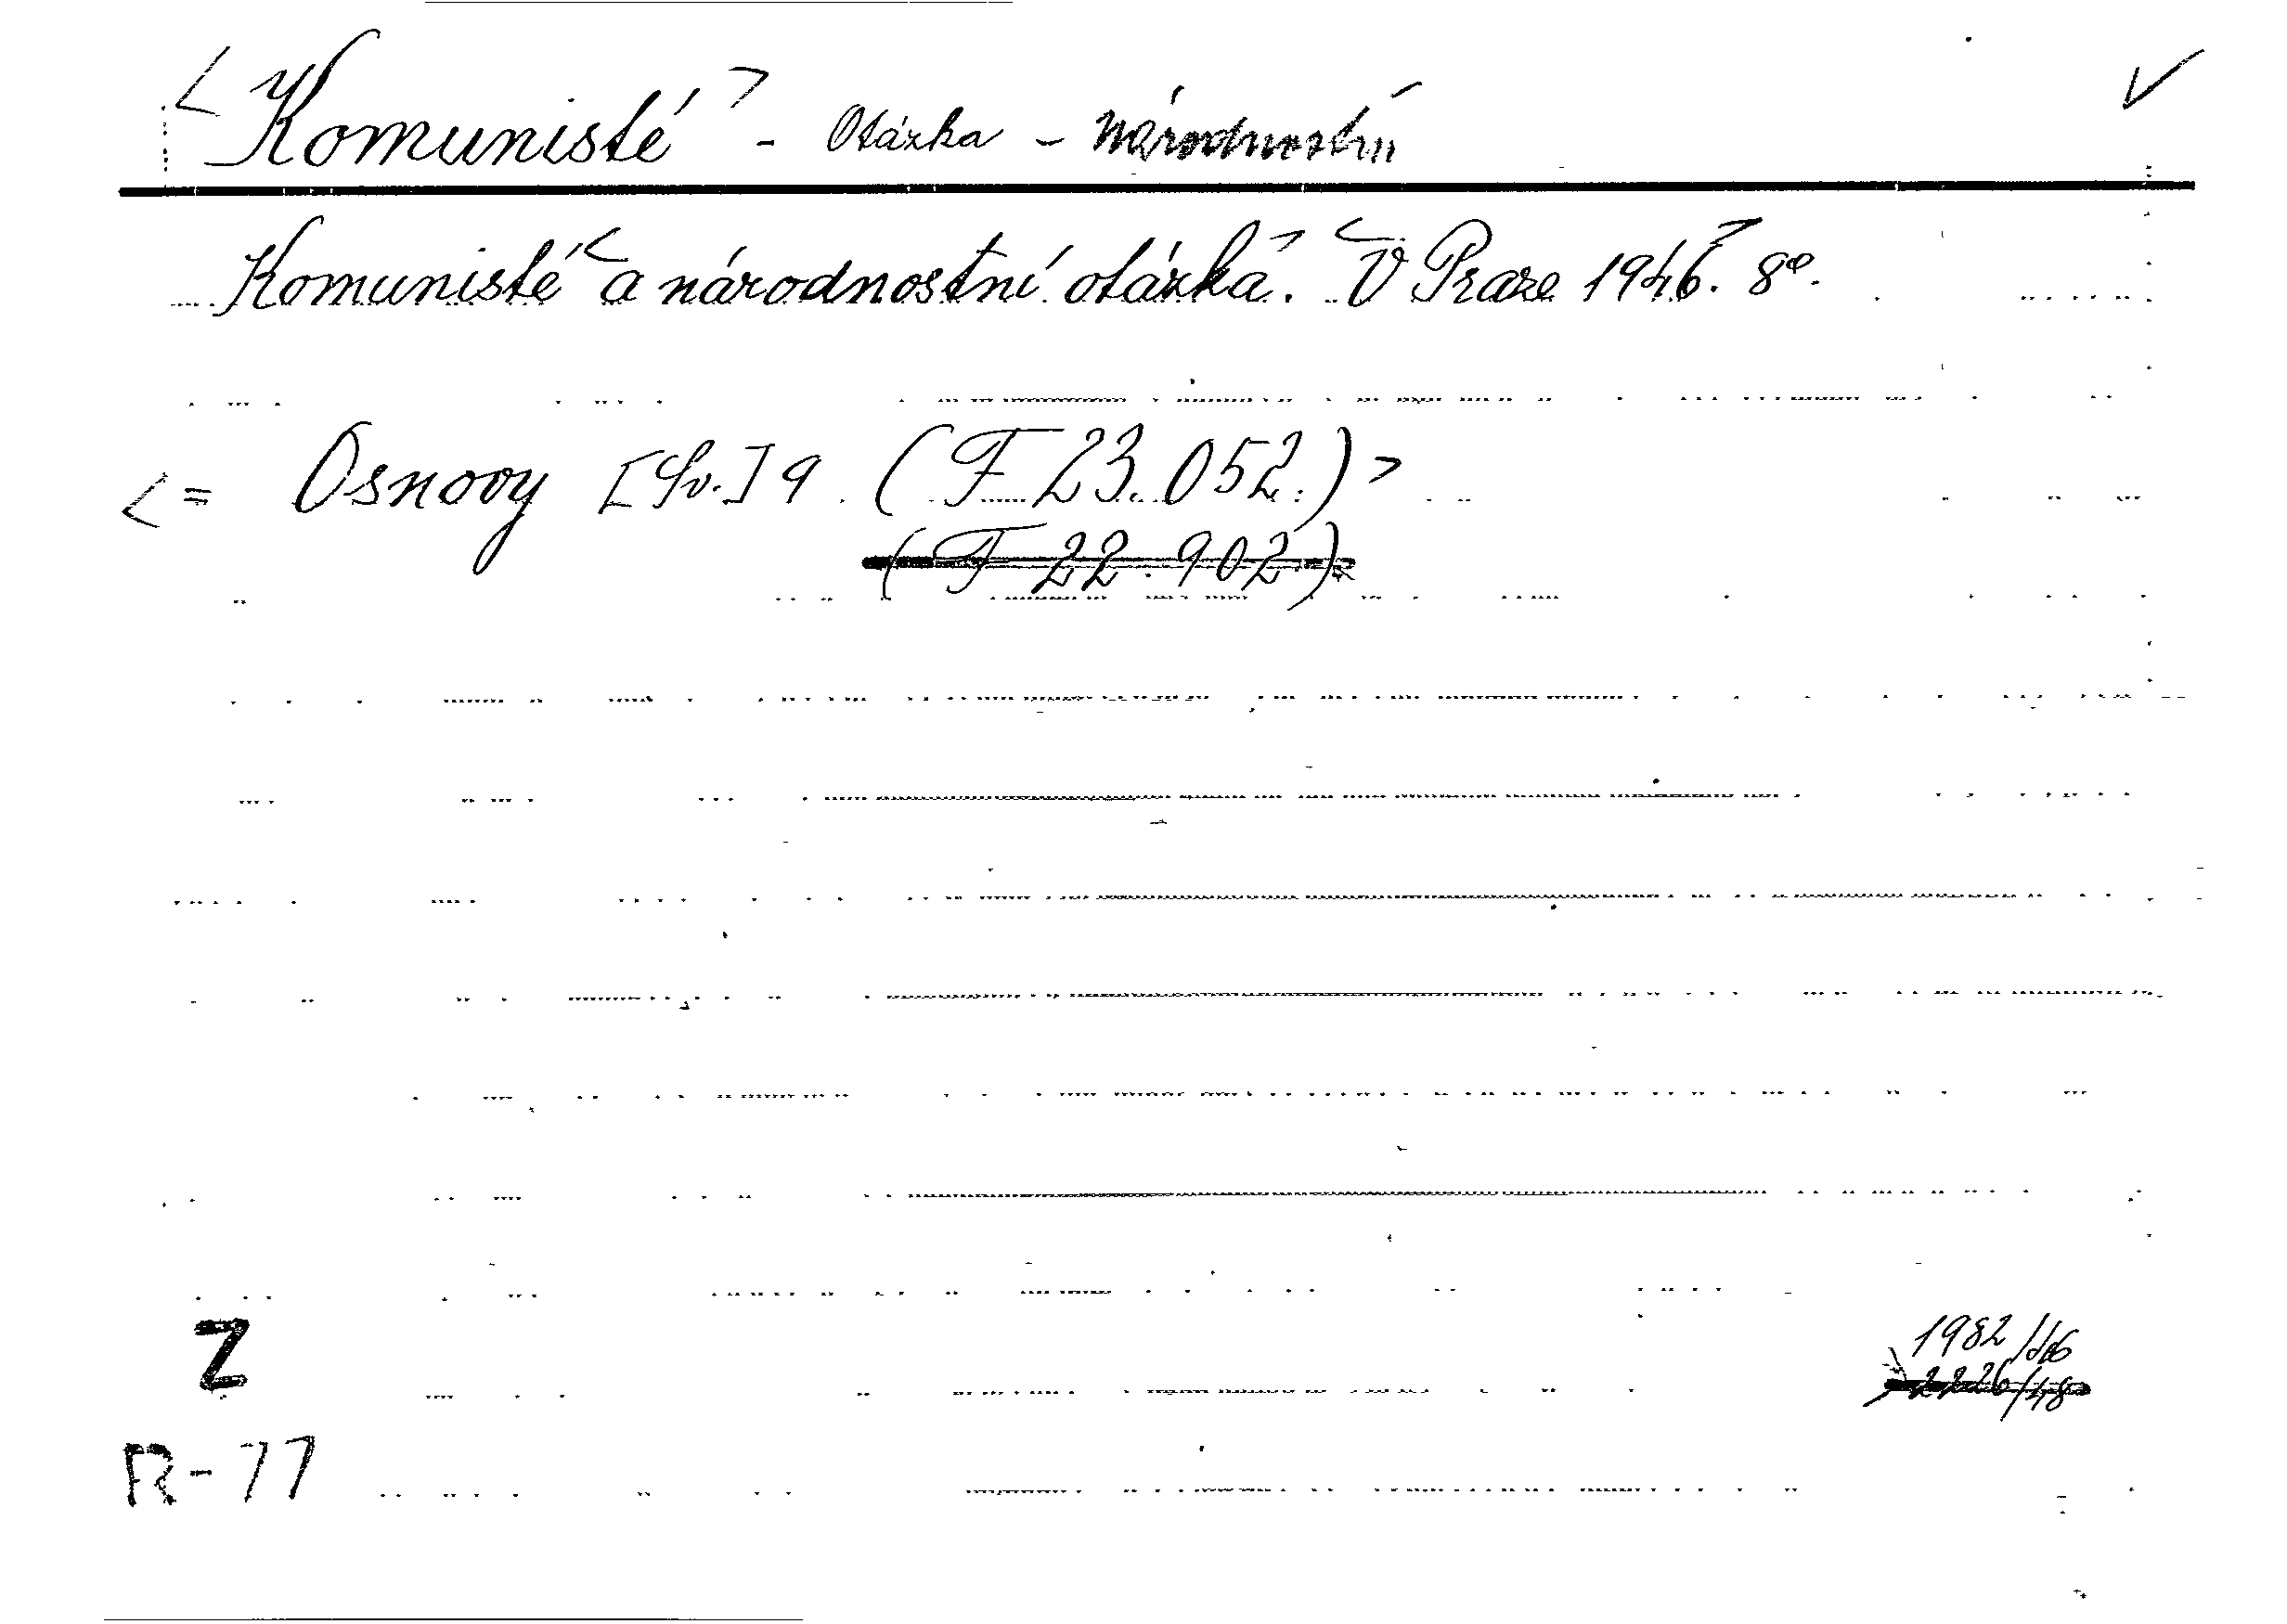 <Komunisté> - Otázka - národnostní ✓
Komunisté <a národnostní otázka.> <V Praze 1946.> 8°.
<= Osnovy [Sv.] 9. (F 23.052.)>
(F 22.902.)
Z
1982/46
2226/48
R-77